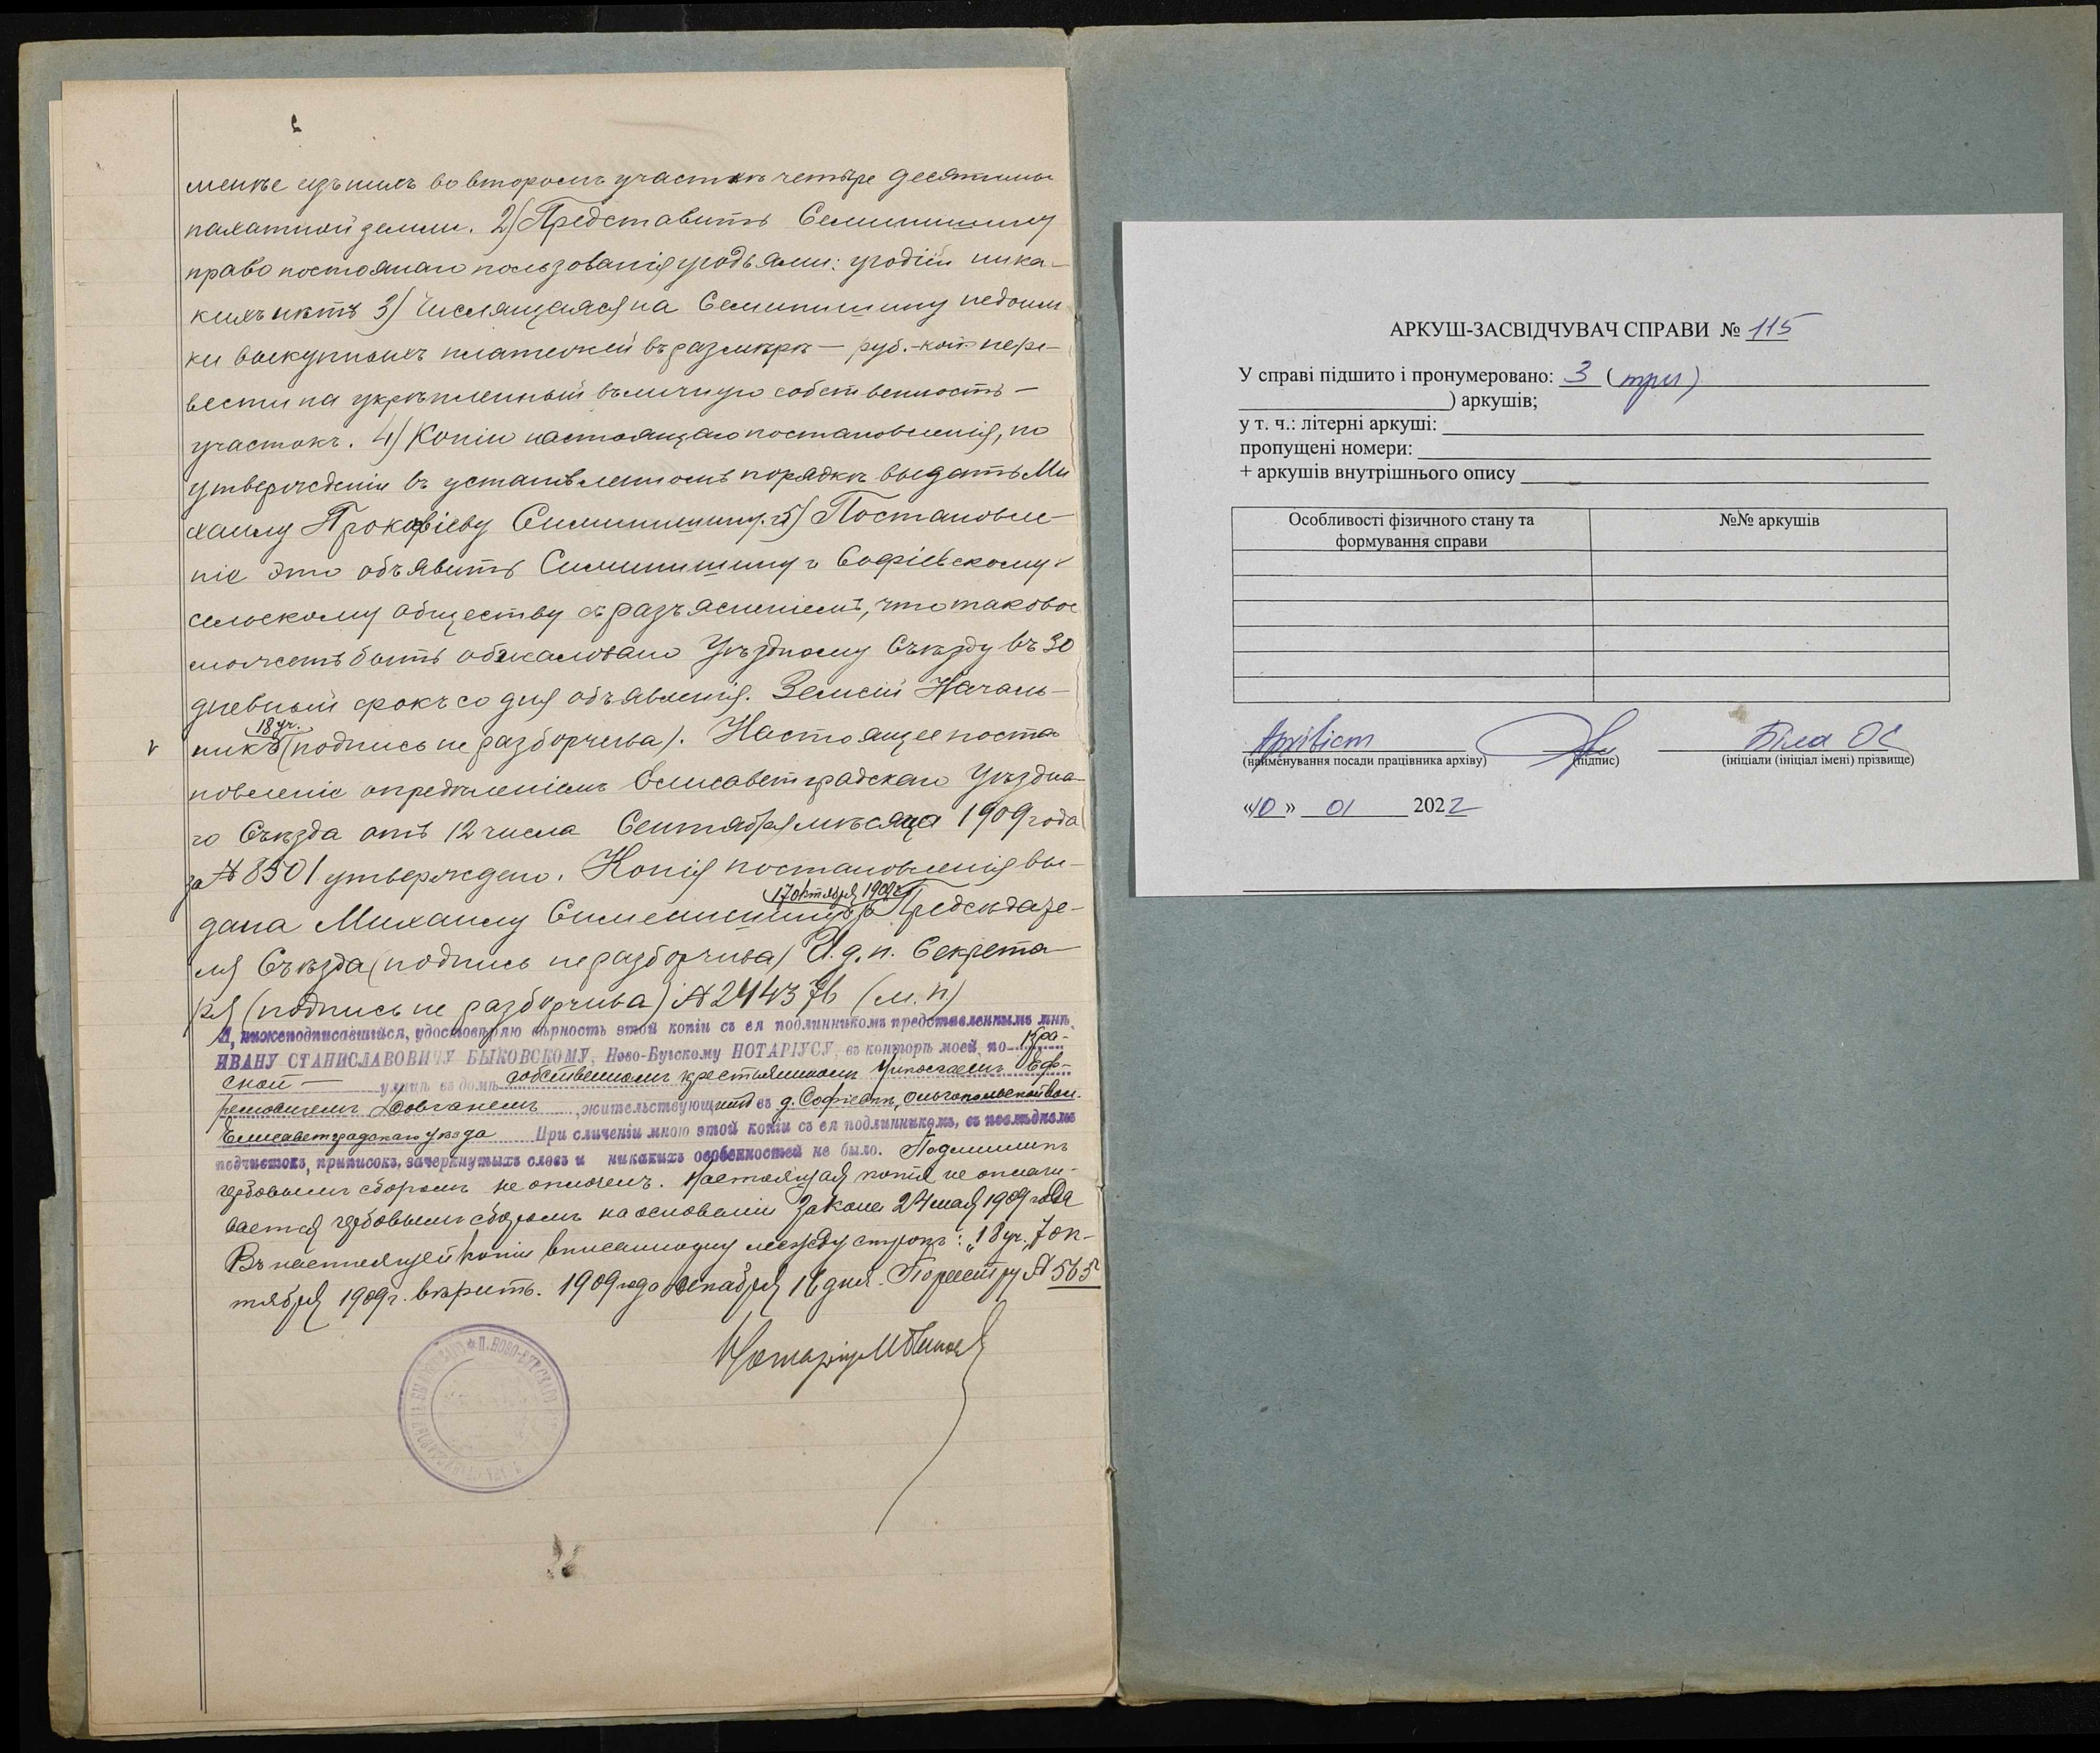 менѣе изъ нихъ во второмъ участкѣ четыре десятины
пахатной земли. 2) Представить Семинишину
право постоянаго пользованія угодьями: угодій ника-
кихъ нѣтъ 3) Числящаяся на Семинишину недоим
ки выкупныхъ платежей въ размѣрѣ — руб. - коп. пере-
вести на укрѣпленный въ личную собственность —
участокъ. 4) Копію настоящаго постановленія, по
утвержденіи въ установленномъ порядкѣ выдать Ми
хаилу Прокофіеву Симинишину. 5) Постановле-
ніе это объявить Симинишину и Софіевскому
сельскому обществу съ разъясненіемъ, что таковое
можетъ быть обжаловано Уѣздному Съѣзду въ 30
дневный срокъ со дня объявленія. Земскій Началь-
18 уч.
никъ (подпись не разборчива). Настоящее поста
новленіе опредѣленіемъ Елисаветградскаго Уѣздна-
го Съѣзда отъ 12 числа Сентября мѣсяца 1909 года
за № 8501 утверждено. Копія постановленія вы-
17 октября 1909 г.
дана Михаилу Симинишину за Предсѣдате-
ля Съѣзда (подпись не разборчива) И. д. п. Секрета-
ря (подпись не разборчива) № 24437 (м. п)
Я, нижеподписавшійся, удостовѣряю вѣрность этой копіи съ ея подлинникомъ представленнымъ мнѣ,
ИВАНУ СТАНИСЛАВОВИЧУ БЫКОВСКОМУ, Ново-Бугскому НОТАРІУСУ, въ конторѣ моей, по
ской — улицѣ въ домѣ собственномъ крестьяниномъ Еф-
ремовичемъ Довганемъ, жительствующимъ въ д. Софіевкѣ, Ольгопольской вол.
Елисаветградскаго уѣзда При сличеніи мною этой копіи съ ея подлинникомъ, въ послѣднемъ
подчистокъ, приписокъ, зачеркнутыхъ словъ и никакихъ особенностей не было. Подлинникъ
гербовымъ сборомъ не оплоченъ. Настоящая копія не оплачи-
вается гербовымъ сборомъ на основаніи Закона 24 мая 1909 года
Въ настоящей копіи вписанному между строкъ: „18 уч. 7 ок-
тября 1909 г. вѣрить. 1909 года декабря 16 дня. По реестру № 5653
Нотаріусъ
П. НОВО-БУГСКАГО
АРКУШ-ЗАСВІДЧУВАЧ СПРАВИ № 115
У справі підшито і пронумеровано: 3 (три)
) аркушів;
у т. ч.: літерні аркуші:
пропущені номери:
+ аркушів внутрішнього опису
Особливості фізичного стану та формування справи
№№ аркушів
Архівіст Біла ОС
(найменування посади працівника архіву) (підпис) (ініціали (ініціал імені) прізвище)
«10» 01 2022